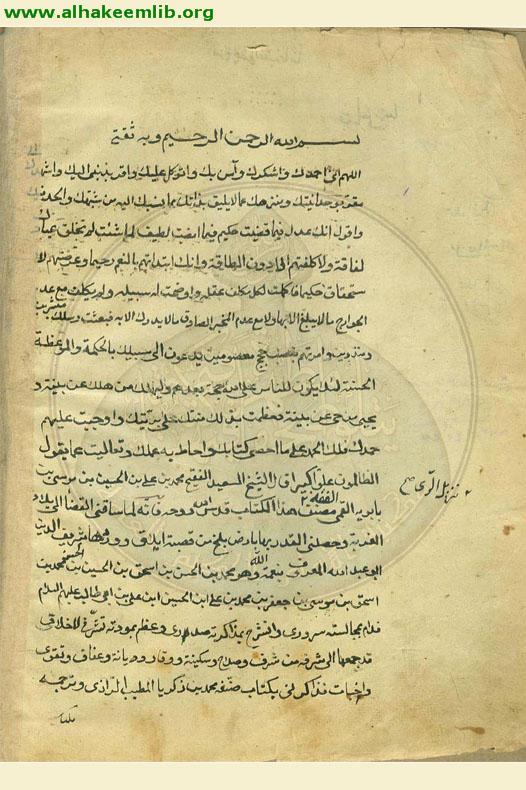 www.alhakeemlib.org
بسم الله الرحمن الرحيم وبه ثقتي
اللهم اني احمدك واشكرك وآمن بك واتوكل عليك واقر بذنبي اليك واشهدك
مقر بوحدانيتك ومنزهك عما لا يليق بذاتك مما نسبك اليه من شبهك والحد فيك
واقول انك عدل فيما قضيت حكيم فيما امضيت لطيف لما شئت لم تخلق عبادك
لفاقة ولا كلفتهم الا دون الطاقة وانك ابتداتهم بالنعم رحيما وعرضتهم للا
ستحقاق حكيما فاكملت لكل مكلف عقله واوضحت له سبيله ولم يكلف مع عدم
الجوارح ما لا يبلغ الا بها ولا مع عدم المخبر الصادق ما لا يدرك الا به فبعثت رسلك مبشرين
ومنذرين وامرتهم بنصب حجج معصومين يدعون الى سبيلك بالحكمة والموعظة
الحسنة لئلا يكون للناس على الله حجة بعدهم وليهلك من هلك عن بينة و
يحيى من حي عن بينة فعظمت بذلك منتك على بريتك واوجبت عليهم
حمدك فلك الحمد على ما احصى كتابك واحاط به علمك وتعاليت عما يقول
الظالمون علوا كبيرا قال الشيخ السعيد الفقيه محمد بن علي بن الحسين بن موسى بن
بابويه القمي مصنف هذا الكتاب قدس الله روحه انه لما ساقني القضا الى بلاد
الفقه
الغربة وحصلني القدر بها بارض بلخ من قصبة ايلاق وردها شريف الدين
ابو عبد الله المعروف بنعمة الله وهو محمد بن الحسن بن اسحق بن الحسين بن
اسحق بن موسى بن جعفر بن محمد بن علي بن الحسين ابن علي بن ابي طالب عليهم السلام
فدام بمجالسته سروري وانشرح بمذاكرته صدري وعظم بمودته تشرفي لاخلاق
قد جمعها الى شرفه من شرف وصلاح وسكينة ووقار وديانة وعفاف وتقوى
واخبات فذاكرني بكتاب صنفه محمد بن زكريا المطبب الرازي وترجمه
نزيل الري